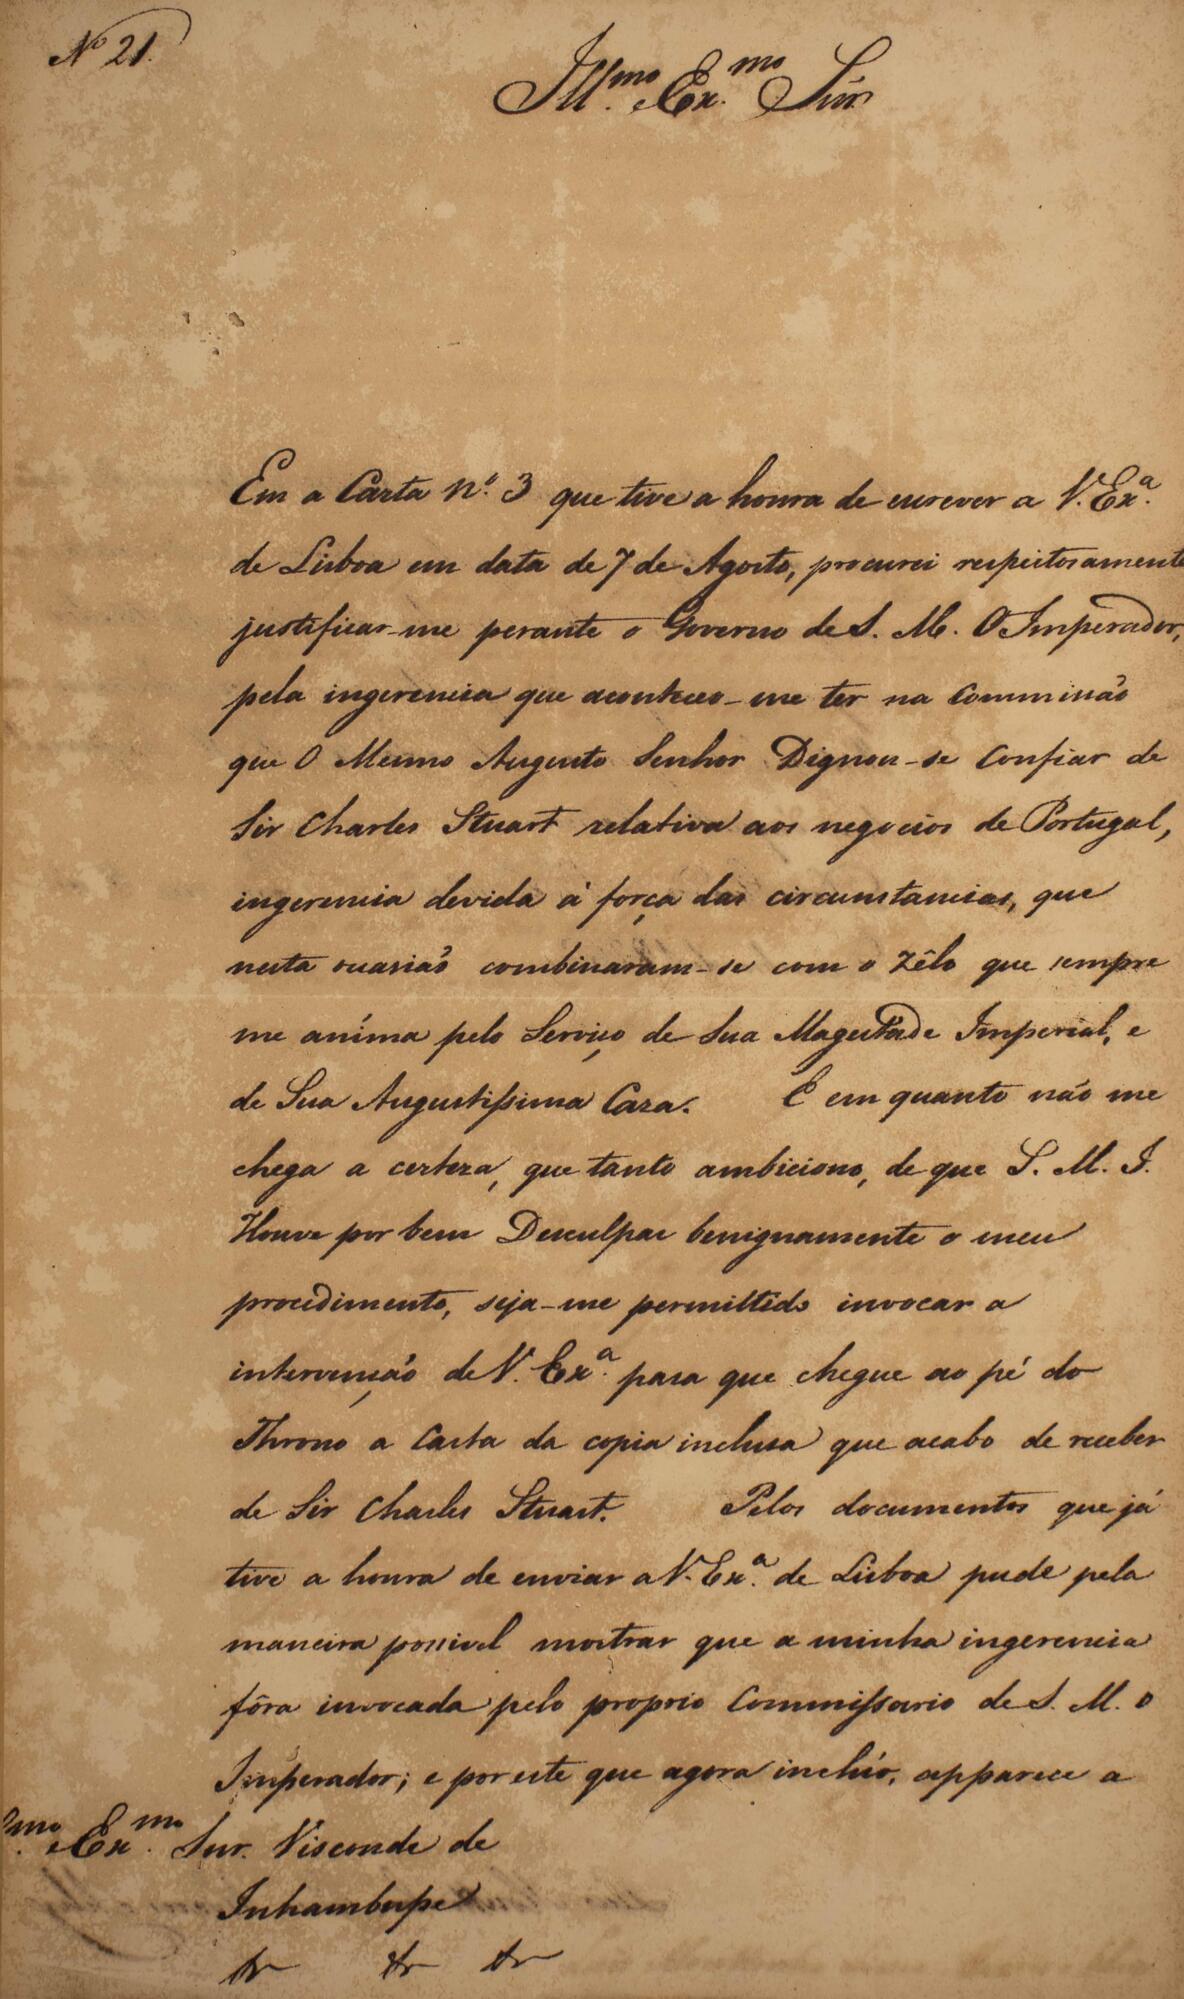 Nº 21.
Ill.mo Ex.mo Snr
Em a Carta nº. 3 que tive a honra de escrever a V. Ex.a
de Lisboa em data de 7 de Agosto, procurei respeitosamente
justificar-me perante o Governo de S. M. O Imperador,
pela ingerencia que aconteceo-me ter na Commissão
que O Mesmo Augusto Senhor Dignou-se Confiar de
Sir Charles Stuart relativa aos negocios de Portugal,
ingerencia devida á força das circunstancias, que
nesta occasião combinaram-se com o zêlo que sempre
me anima pelo Serviço de Sua Magestade Imperial, e
de Sua Augustissima Caza. E em quanto não me
chega a certeza, que tanto ambiciono, de que S. M. I.
Houve por bem Desculpar benignamente o meu
procedimento, seja-me permittido invocar a
intervenção de V. Ex.a para que chegue ao pé do
Throno a Carta da copia inclusa que acabo de receber
de Sir Charles Stuart. Pelos documentos que já
tive a honra de enviar a V. Ex.a de Lisboa pude pela
maneira possivel mostrar que a minha ingerencia
fôra invocada pelo proprio Commissario de S. M. o
Imperador; e por este que agora inclúo, apparece a
mo e Ex.mo Snr. Visconde de
Inhambupe